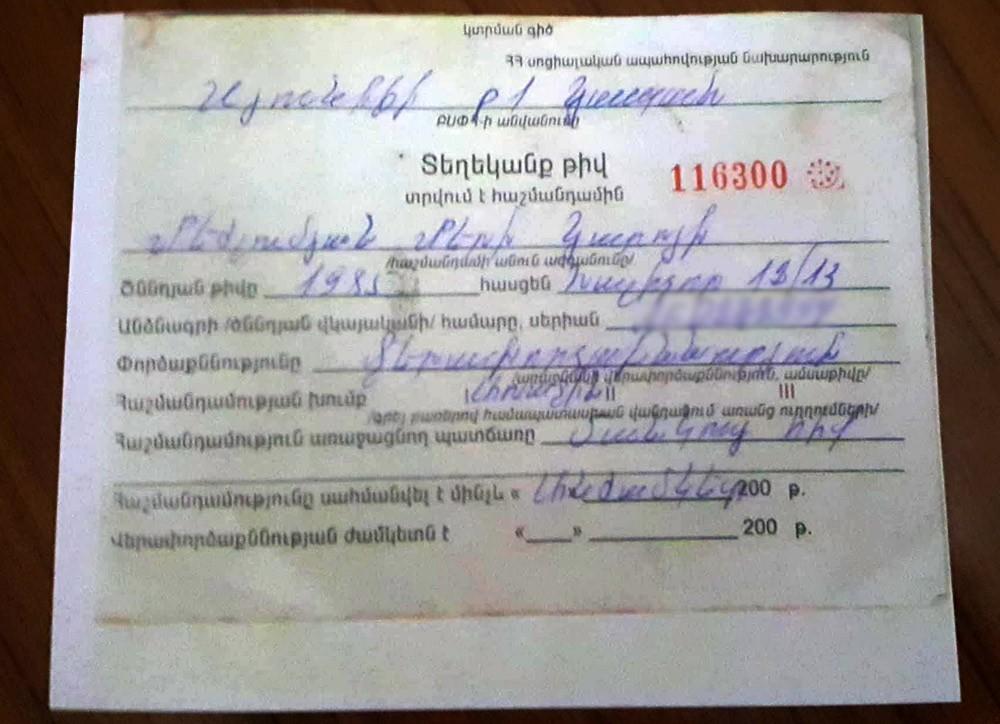 կտրման գիծ
ՀՀ սոցիալական ապահովության նախարարություն
Սյունիքի թ 1 Կապան
ԲՍՓՀ-ի անվանումը
Տեղեկանք թիվ 116300
տրվում է հաշմանդամին
/հաշմանդամի անուն ազգանունը/
Ծննդյան թիվը 1983 հասցեն 13/13
Անձնագրի /ծննդյան վկայականի/ համարը, սերիան
Փորձաքննությունը
/արձանագրել վերափորձաքննություն, ամսաթիվը/
Հաշմանդամության խումբ II III
/գրել բառերով համապատասխան վանդակում առանց ուղղումների/
Հաշմանդամություն առաջացնող պատճառը մանկուց հիվ
Հաշմանդամությունը սահմանվել է մինչև « անժամկետ 200 թ.
Վերափորձաքննության ժամկետն է «___» 200 թ.